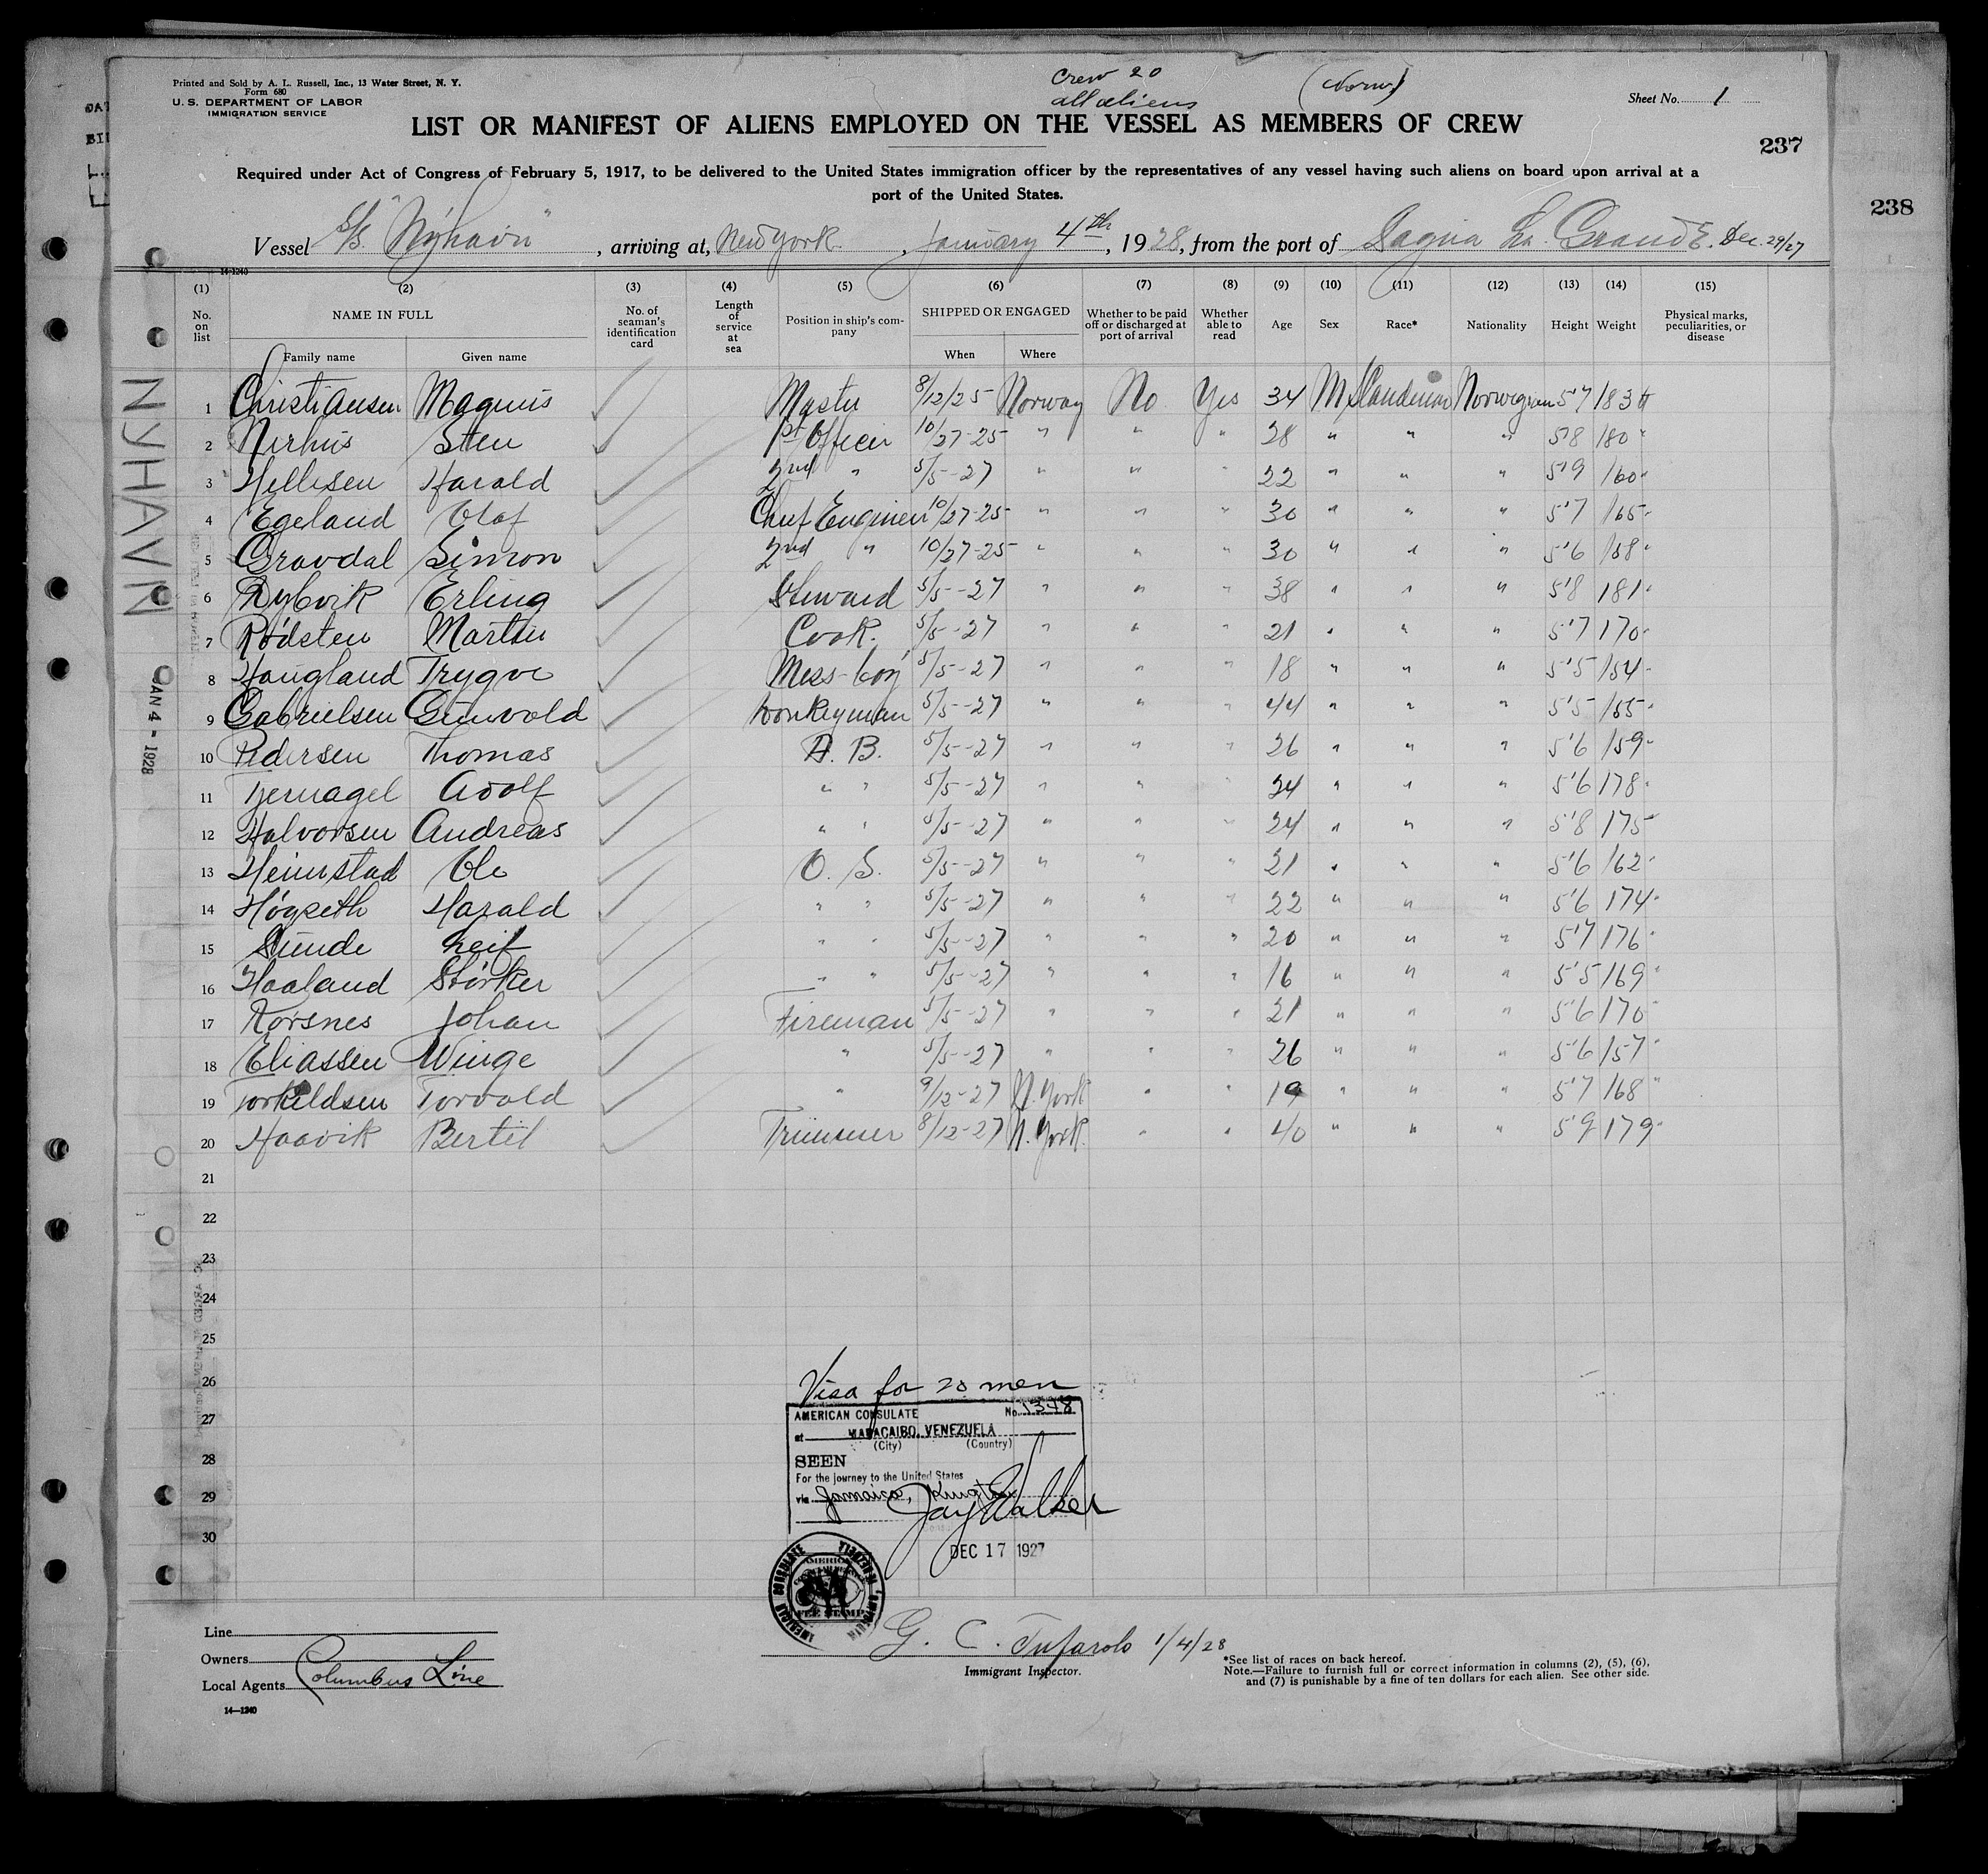 Printed and Sold by A. L. Russell, Inc., 13 Water Street, N. Y.
Form 680
U. S. DEPARTMENT OF LABOR
IMMIGRATION SERVICE
Crew 20
all aliens
(Norw)
Sheet No. 1
LIST OR MANIFEST OF ALIENS EMPLOYED ON THE VESSEL AS MEMBERS OF CREW
237
238
Required under Act of Congress of February 5, 1917, to be delivered to the United States immigration officer by the representatives of any vessel having such aliens on board upon arrival at a
port of the United States.
Vessel S/S. "Nyhavn", arriving at, New York, January 4th, 1928, from the port of Sagua La Grande. Dec. 29/27
14-1240
(1) (2) (3) (4) (5) (6) (7) (8) (9) (10) (11) (12) (13) (14) (15)
No. on list NAME IN FULL Family name Given name No. of seaman's identification card Length of service at sea Position in ship's company SHIPPED OR ENGAGED When Where Whether to be paid off or discharged at port of arrival Whether able to read Age Sex Race* Nationality Height Weight Physical marks, peculiarities, or disease
NYHAVN
JAN 4 - 1928
1 Christiansen Magnus Master 8/12/25 Norway No Yes 34 M Scandinav Norwegian 5'7 183 lb
2 Nerhus Sten 1st Officer 10/27-25 " " " 28 " " " 5'8 180 "
3 Hellesen Harald 2nd " 5/5-27 " " " 22 " " " 5'9 160 "
4 Egeland Olaf Chief Engineer 10/27-25 " " " 30 " " " 5'7 165 "
5 Gravdal Simon 2nd " 10/27-25 " " " 30 " " " 5'6 158 "
6 Dybvik Erling Steward 5/5-27 " " " 38 " " " 5'8 181 "
7 Rødsten Martin Cook. 5/5-27 " " " 21 " " " 5'7 170 "
8 Haugland Trygve Mess-boy 5/5-27 " " " 18 " " " 5'5 154 "
9 Gabrielsen Gunvold Donkeyman 5/5-27 " " " 44 " " " 5'5 155 "
10 Pedersen Thomas A. B. 5/5-27 " " " 26 " " " 5'6 159 "
11 Tjernagel Adolf " " 5/5-27 " " 24 " " " 5'6 178 "
12 Halvorsen Andreas " " 5/5-27 " " " 24 " " " 5'8 175 "
13 Heimstad Ole O. S. 5/5-27 " " " 21 " " " 5'6 162 "
14 Høgseth Harald " " 5/5-27 " " " 22 " " " 5'6 174 "
15 Sunde Leif " " 5/5-27 " " " 20 " " " 5'7 176 "
16 Haaland Størker " " 5/5-27 " " " 16 " " " 5'5 169 "
17 Korsnes Johan Fireman 5/5-27 " " " 21 " " " 5'6 170 "
18 Eliassen Winge " 5/5-27 " " " 26 " " " 5'6 157 "
19 Torkildsen Torvald " 9/12-27 N. York " " 19 " " " 5'7 168 "
20 Haavik Bertil Trimmer 8/12-27 N. York. " " 40 " " " 5'9 179 "
21
22
23
24
25
26
27
28
29
30
Visa for 20 men
AMERICAN CONSULATE No. 1348
at MARACAIBO, VENEZUELA
(City) (Country)
SEEN
For the journey to the United States
via Jamaica, Kingston
Jay Walker
DEC 17 1927
AMERICAN CONSULATE
FEE STAMP
Line
Owners
Local Agents Columbus Line
14-1240
G. C. Tufarolo 1/4/28
Immigrant Inspector.
*See list of races on back hereof.
Note.—Failure to furnish full or correct information in columns (2), (5), (6),
and (7) is punishable by a fine of ten dollars for each alien. See other side.